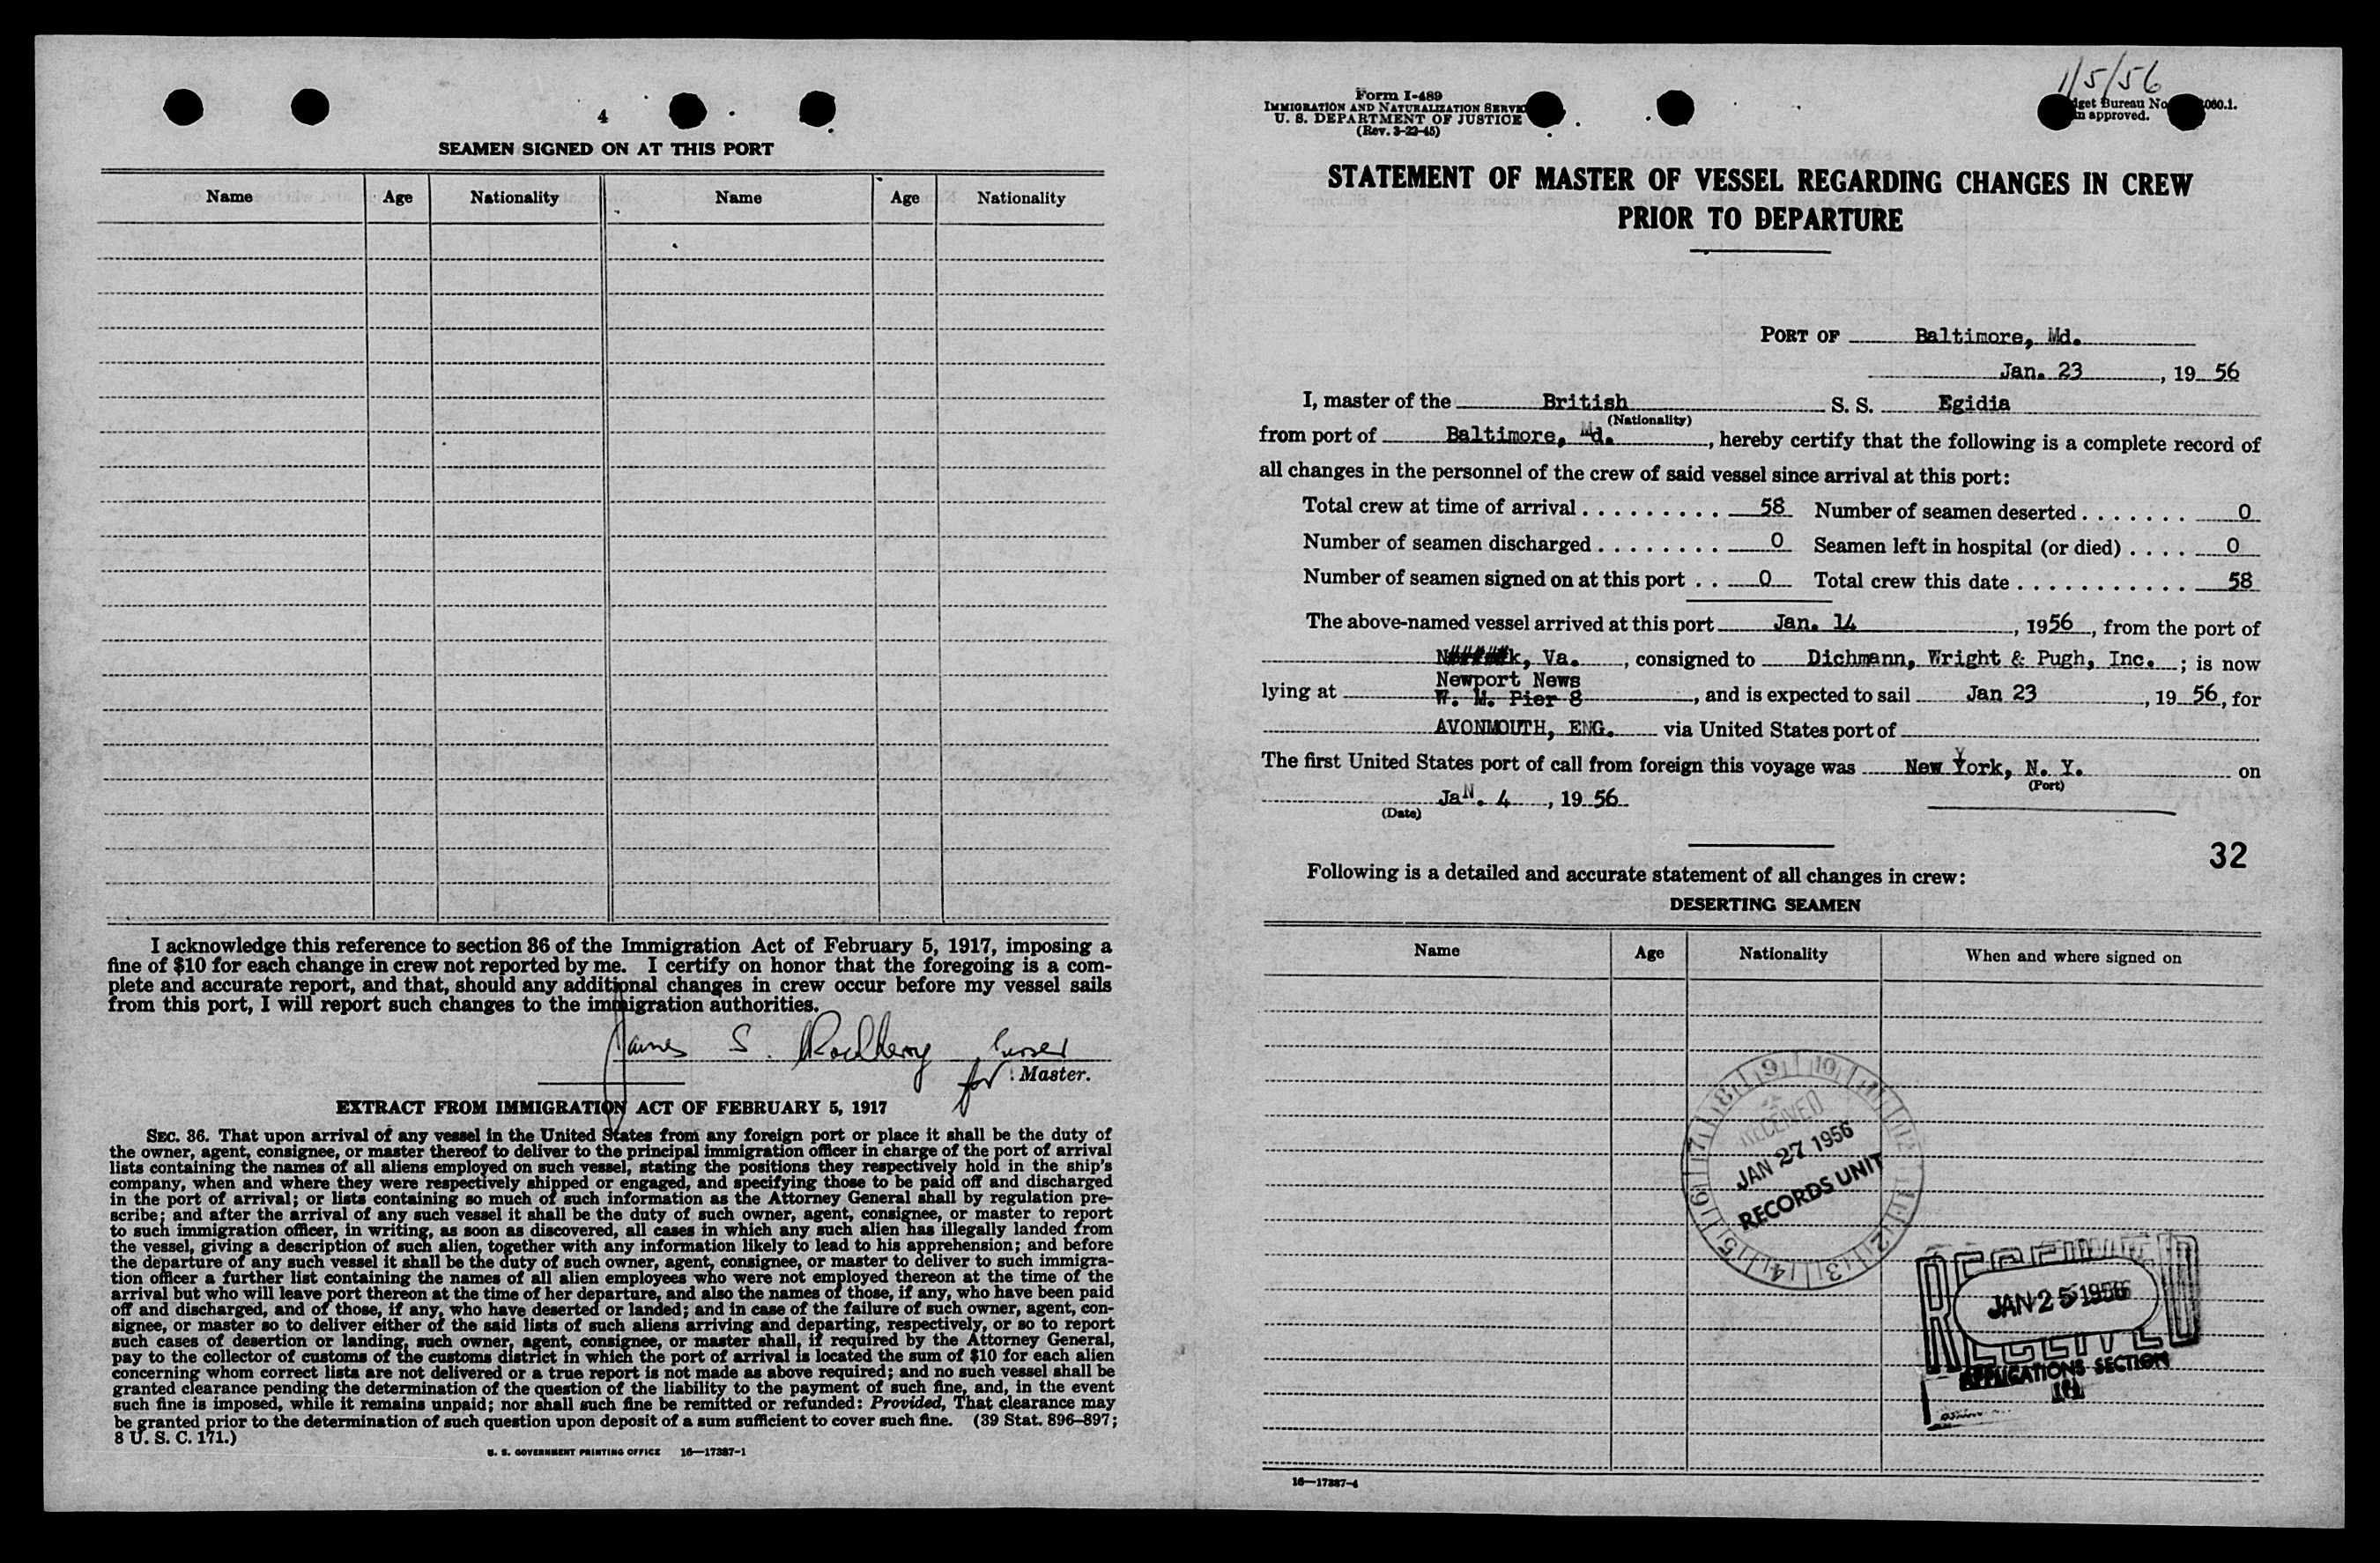 4
SEAMEN SIGNED ON AT THIS PORT
Name Age Nationality Name Age Nationality
I acknowledge this reference to section 36 of the Immigration Act of February 5, 1917, imposing a
fine of $10 for each change in crew not reported by me. I certify on honor that the foregoing is a com-
plete and accurate report, and that, should any additional changes in crew occur before my vessel sails
from this port, I will report such changes to the immigration authorities.
James S. Purser
for Master.
EXTRACT FROM IMMIGRATION ACT OF FEBRUARY 5, 1917
SEC. 36. That upon arrival of any vessel in the United States from any foreign port or place it shall be the duty of
the owner, agent, consignee, or master thereof to deliver to the principal immigration officer in charge of the port of arrival
lists containing the names of all aliens employed on such vessel, stating the positions they respectively hold in the ship's
company, when and where they were respectively shipped or engaged, and specifying those to be paid off and discharged
in the port of arrival; or lists containing so much of such information as the Attorney General shall by regulation pre-
scribe; and after the arrival of any such vessel it shall be the duty of such owner, agent, consignee, or master to report
to such immigration officer, in writing, as soon as discovered, all cases in which any such alien has illegally landed from
the vessel, giving a description of such alien, together with any information likely to lead to his apprehension; and before
the departure of any such vessel it shall be the duty of such owner, agent, consignee, or master to deliver to such immigra-
tion officer a further list containing the names of all alien employees who were not employed thereon at the time of the
arrival but who will leave port thereon at the time of her departure, and also the names of those, if any, who have been paid
off and discharged, and of those, if any, who have deserted or landed; and in case of the failure of such owner, agent, con-
signee, or master so to deliver either of the said lists of such aliens arriving and departing, respectively, or so to report
such cases of desertion or landing, such owner, agent, consignee, or master shall, if required by the Attorney General,
pay to the collector of customs of the customs district in which the port of arrival is located the sum of $10 for each alien
concerning whom correct lists are not delivered or a true report is not made as above required; and no such vessel shall be
granted clearance pending the determination of the question of the liability to the payment of such fine, and, in the event
such fine is imposed, while it remains unpaid; nor shall such fine be remitted or refunded: Provided, That clearance may
be granted prior to the determination of such question upon deposit of a sum sufficient to cover such fine. (39 Stat. 896–897;
8 U. S. C. 171.)
U. S. GOVERNMENT PRINTING OFFICE 16—17387-1
1/5/56
Form I-489
IMMIGRATION AND NATURALIZATION SERVICE
U. S. DEPARTMENT OF JUSTICE
(Rev. 3-22-45)
Bureau No
approved.
STATEMENT OF MASTER OF VESSEL REGARDING CHANGES IN CREW
PRIOR TO DEPARTURE
PORT OF Baltimore, Md.
Jan. 23, 19 56
I, master of the British S. S. Egidia
(Nationality)
from port of Baltimore, Md., hereby certify that the following is a complete record of
all changes in the personnel of the crew of said vessel since arrival at this port:
Total crew at time of arrival . . . . . . . . . 58 Number of seamen deserted . . . . . . . 0
Number of seamen discharged . . . . . . . . 0 Seamen left in hospital (or died) . . . . 0
Number of seamen signed on at this port . . 0 Total crew this date . . . . . . . . . . . . 58
The above-named vessel arrived at this port Jan. 14, 1956, from the port of
Va., consigned to Dichmann, Wright & Pugh, Inc. ; is now
Newport News
lying at W. M. Pier 8, and is expected to sail Jan 23, 19 56, for
AVONMOUTH, ENG. via United States port of
The first United States port of call from foreign this voyage was New York, N. Y. on
(Port)
JaN. 4, 19 56
(Date)
32
Following is a detailed and accurate statement of all changes in crew:
DESERTING SEAMEN
Name Age Nationality When and where signed on
RECEIVED
JAN 27 1956
RECORDS UNIT
RECEIVED
JAN 25 1956
APPLICATIONS SECTION
16—17387-4